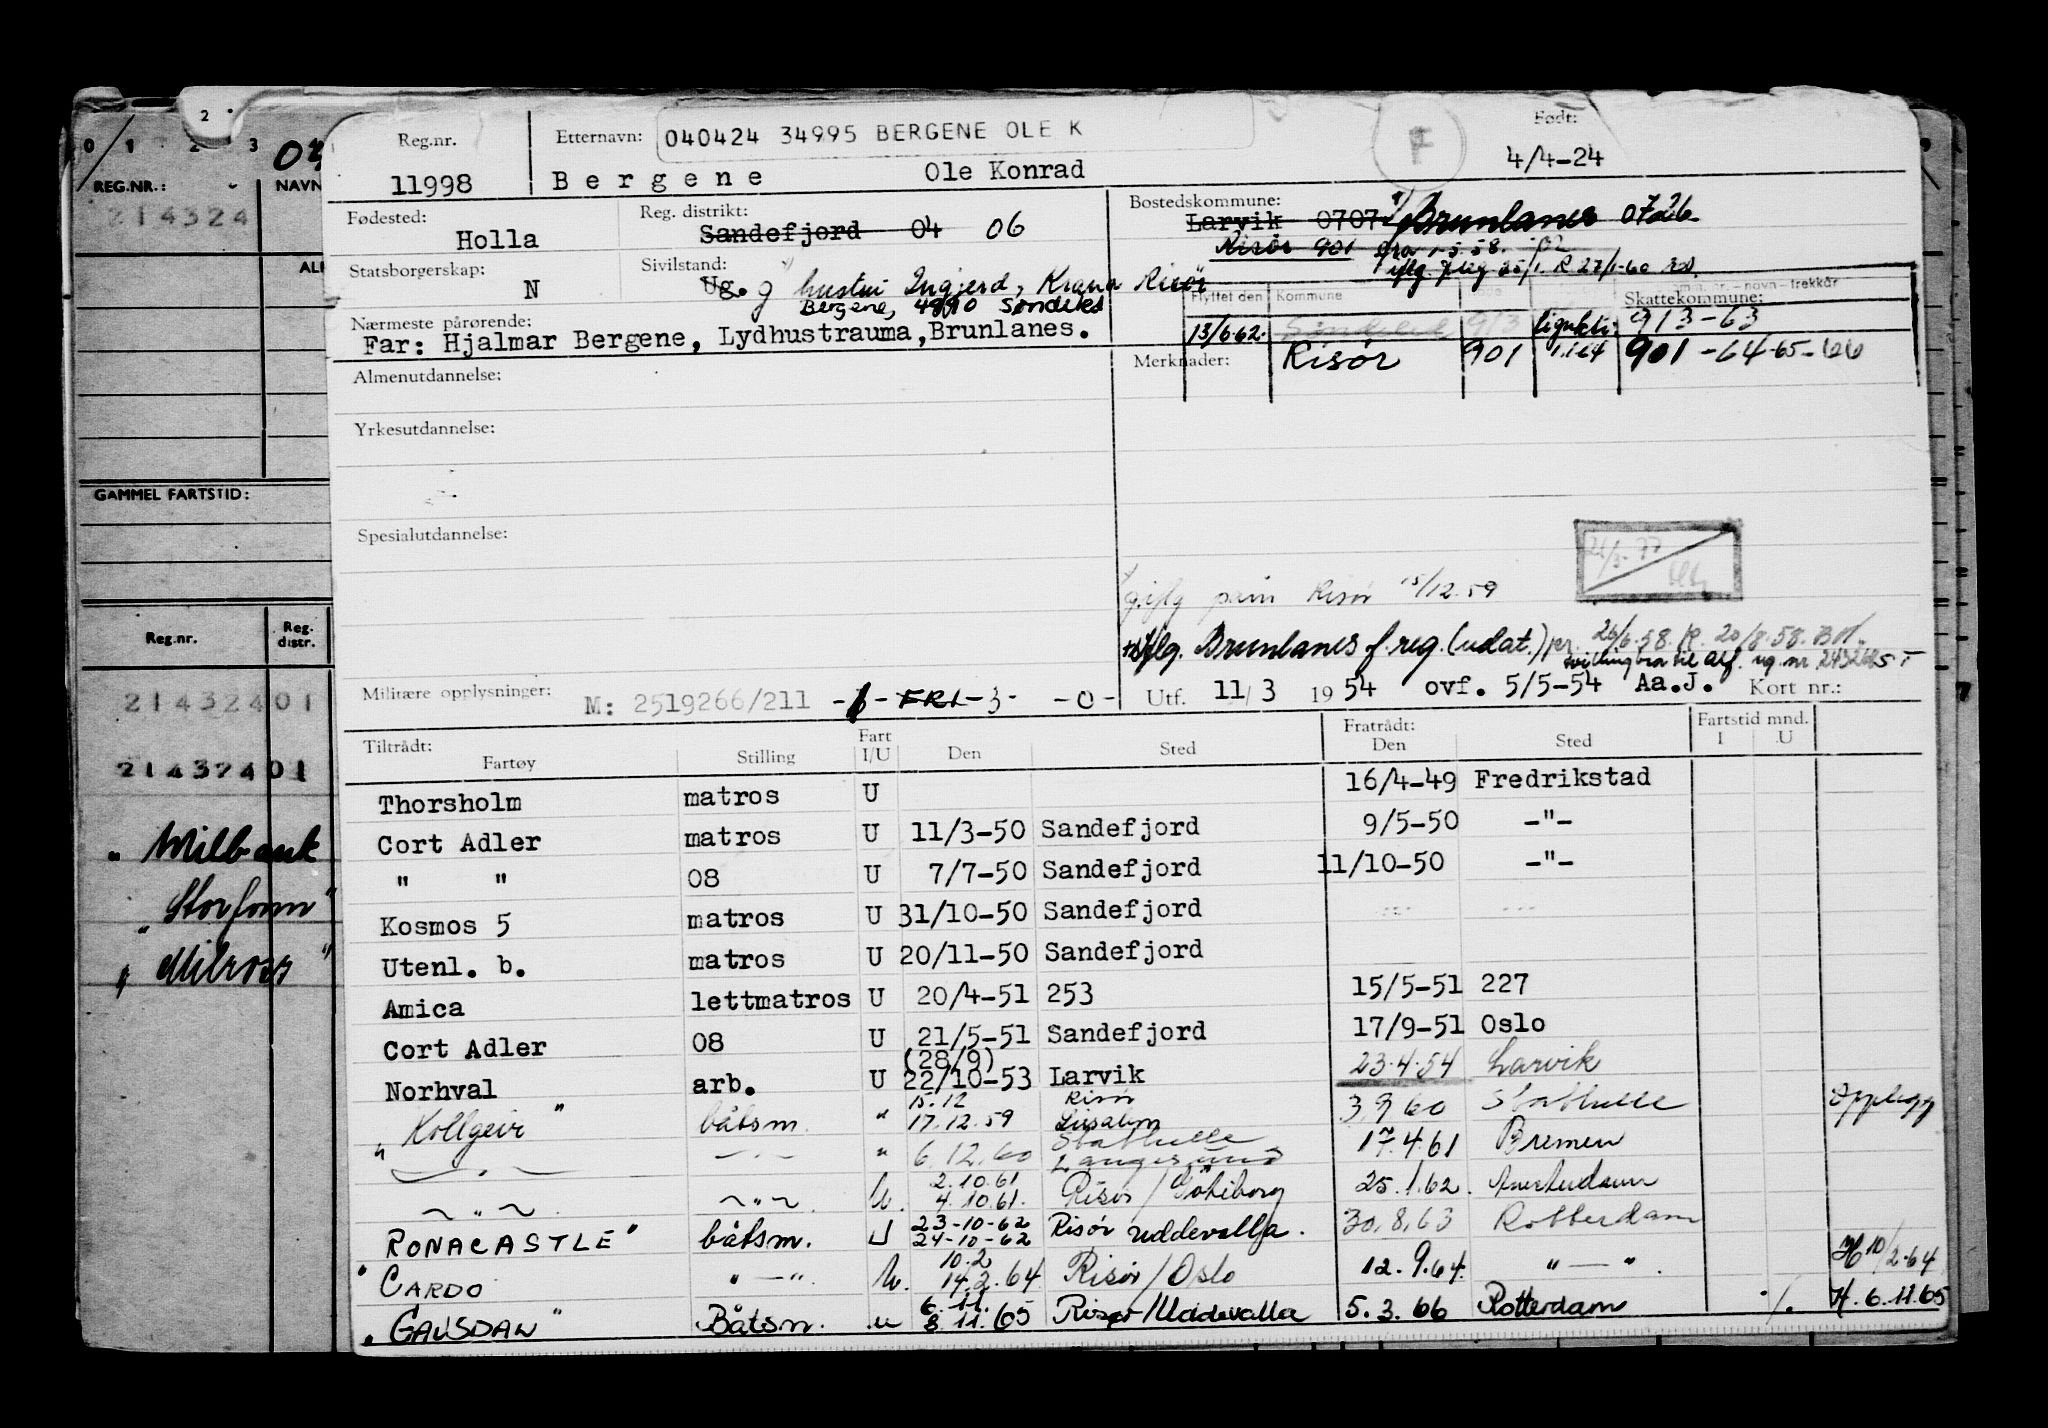 0 1 2 3 04
2
REG.NR.: NAVN
214324
GAMMEL FARTSTID:
Reg.nr. Reg. distr.
21432401
21432401
" Wilbank
" Storfonn "
" Milross "
Reg.nr. Etternavn: 040424 34995 BERGENE OLE K F Født:
11998 Bergene Ole Konrad 4/4-24
Fødested: Reg. distrikt: Bostedskommune:
Holla Sandefjord 04 06 Larvik 0707 Brunlanes 0726
Risør 901 fra 1-5-58.
Statsborgerskap: Sivilstand: iflg. flg 25/1. R 27/1-60
N Ug. g hustru Ingjerd, Krana Risør
Bergene, 4990 Søndeled
Flyttet den Kommune Skattekommune:
Nærmeste pårørende: 13/6.62. Søndeled 913 913-63
Far: Hjalmar Bergene, Lydhustrauma, Brunlanes.
Merknader: Risør 901 1.1.64 901-64-65-66
Almenutdannelse:
Yrkesutdannelse:
Spesialutdannelse:
g. iflg Risør 15/12.59
Iflg. Brunlanes f.reg. (udat.) 26/6.58. R. 20/8.58.
Militære opplysninger: M: 2519266/211 -FRI-3- -0- Utf. 11/3 1954 ovf. 5/5-54 Aa.J. Kort nr.:
Tiltrådt: Fratrådt: Fartstid mnd.
Fartøy Stilling Fart I/U Den Sted Den Sted I U
Thorsholm matros U 16/4-49 Fredrikstad
Cort Adler matros U 11/3-50 Sandefjord 9/5-50 -"-
" " 08 U 7/7-50 Sandefjord 11/10-50 -"-
Kosmos 5 matros U 31/10-50 Sandefjord
Utenl. b. matros U 20/11-50 Sandefjord
Amica lettmatros U 20/4-51 253 15/5-51 227
Cort Adler 08 U 21/5-51 Sandefjord 17/9-51 Oslo
(28/9)
Norhval arb. U 22/10-53 Larvik 23.4.54 Larvik
15.12 Risør
" Kollgeir " båtsm. " 17.12.59 3.9.60 Stathelle Opplegg
Stathelle
— " — — " — " 6.12.60 Langesund 17.4.61 Bremen
2.10.61
~ " ~ ~ " ~ U. 4.10.61. Risør / Göteborg 25.1.62. Amsterdam
23-10-62
RONACASTLE " båtsm. U 24-10-62 Risør uddevalla. 30.8.63 Rotterdam
10.2
" CARDO " — " U. 14.2.64. Risør / Oslo 12.9.64. " — " H 10/2-64
6.11.
" GAUSDAL " Båtsm. u 8.11.65 Risør / Uddevalla 5.3.66 Rotterdam H. 6.11.65